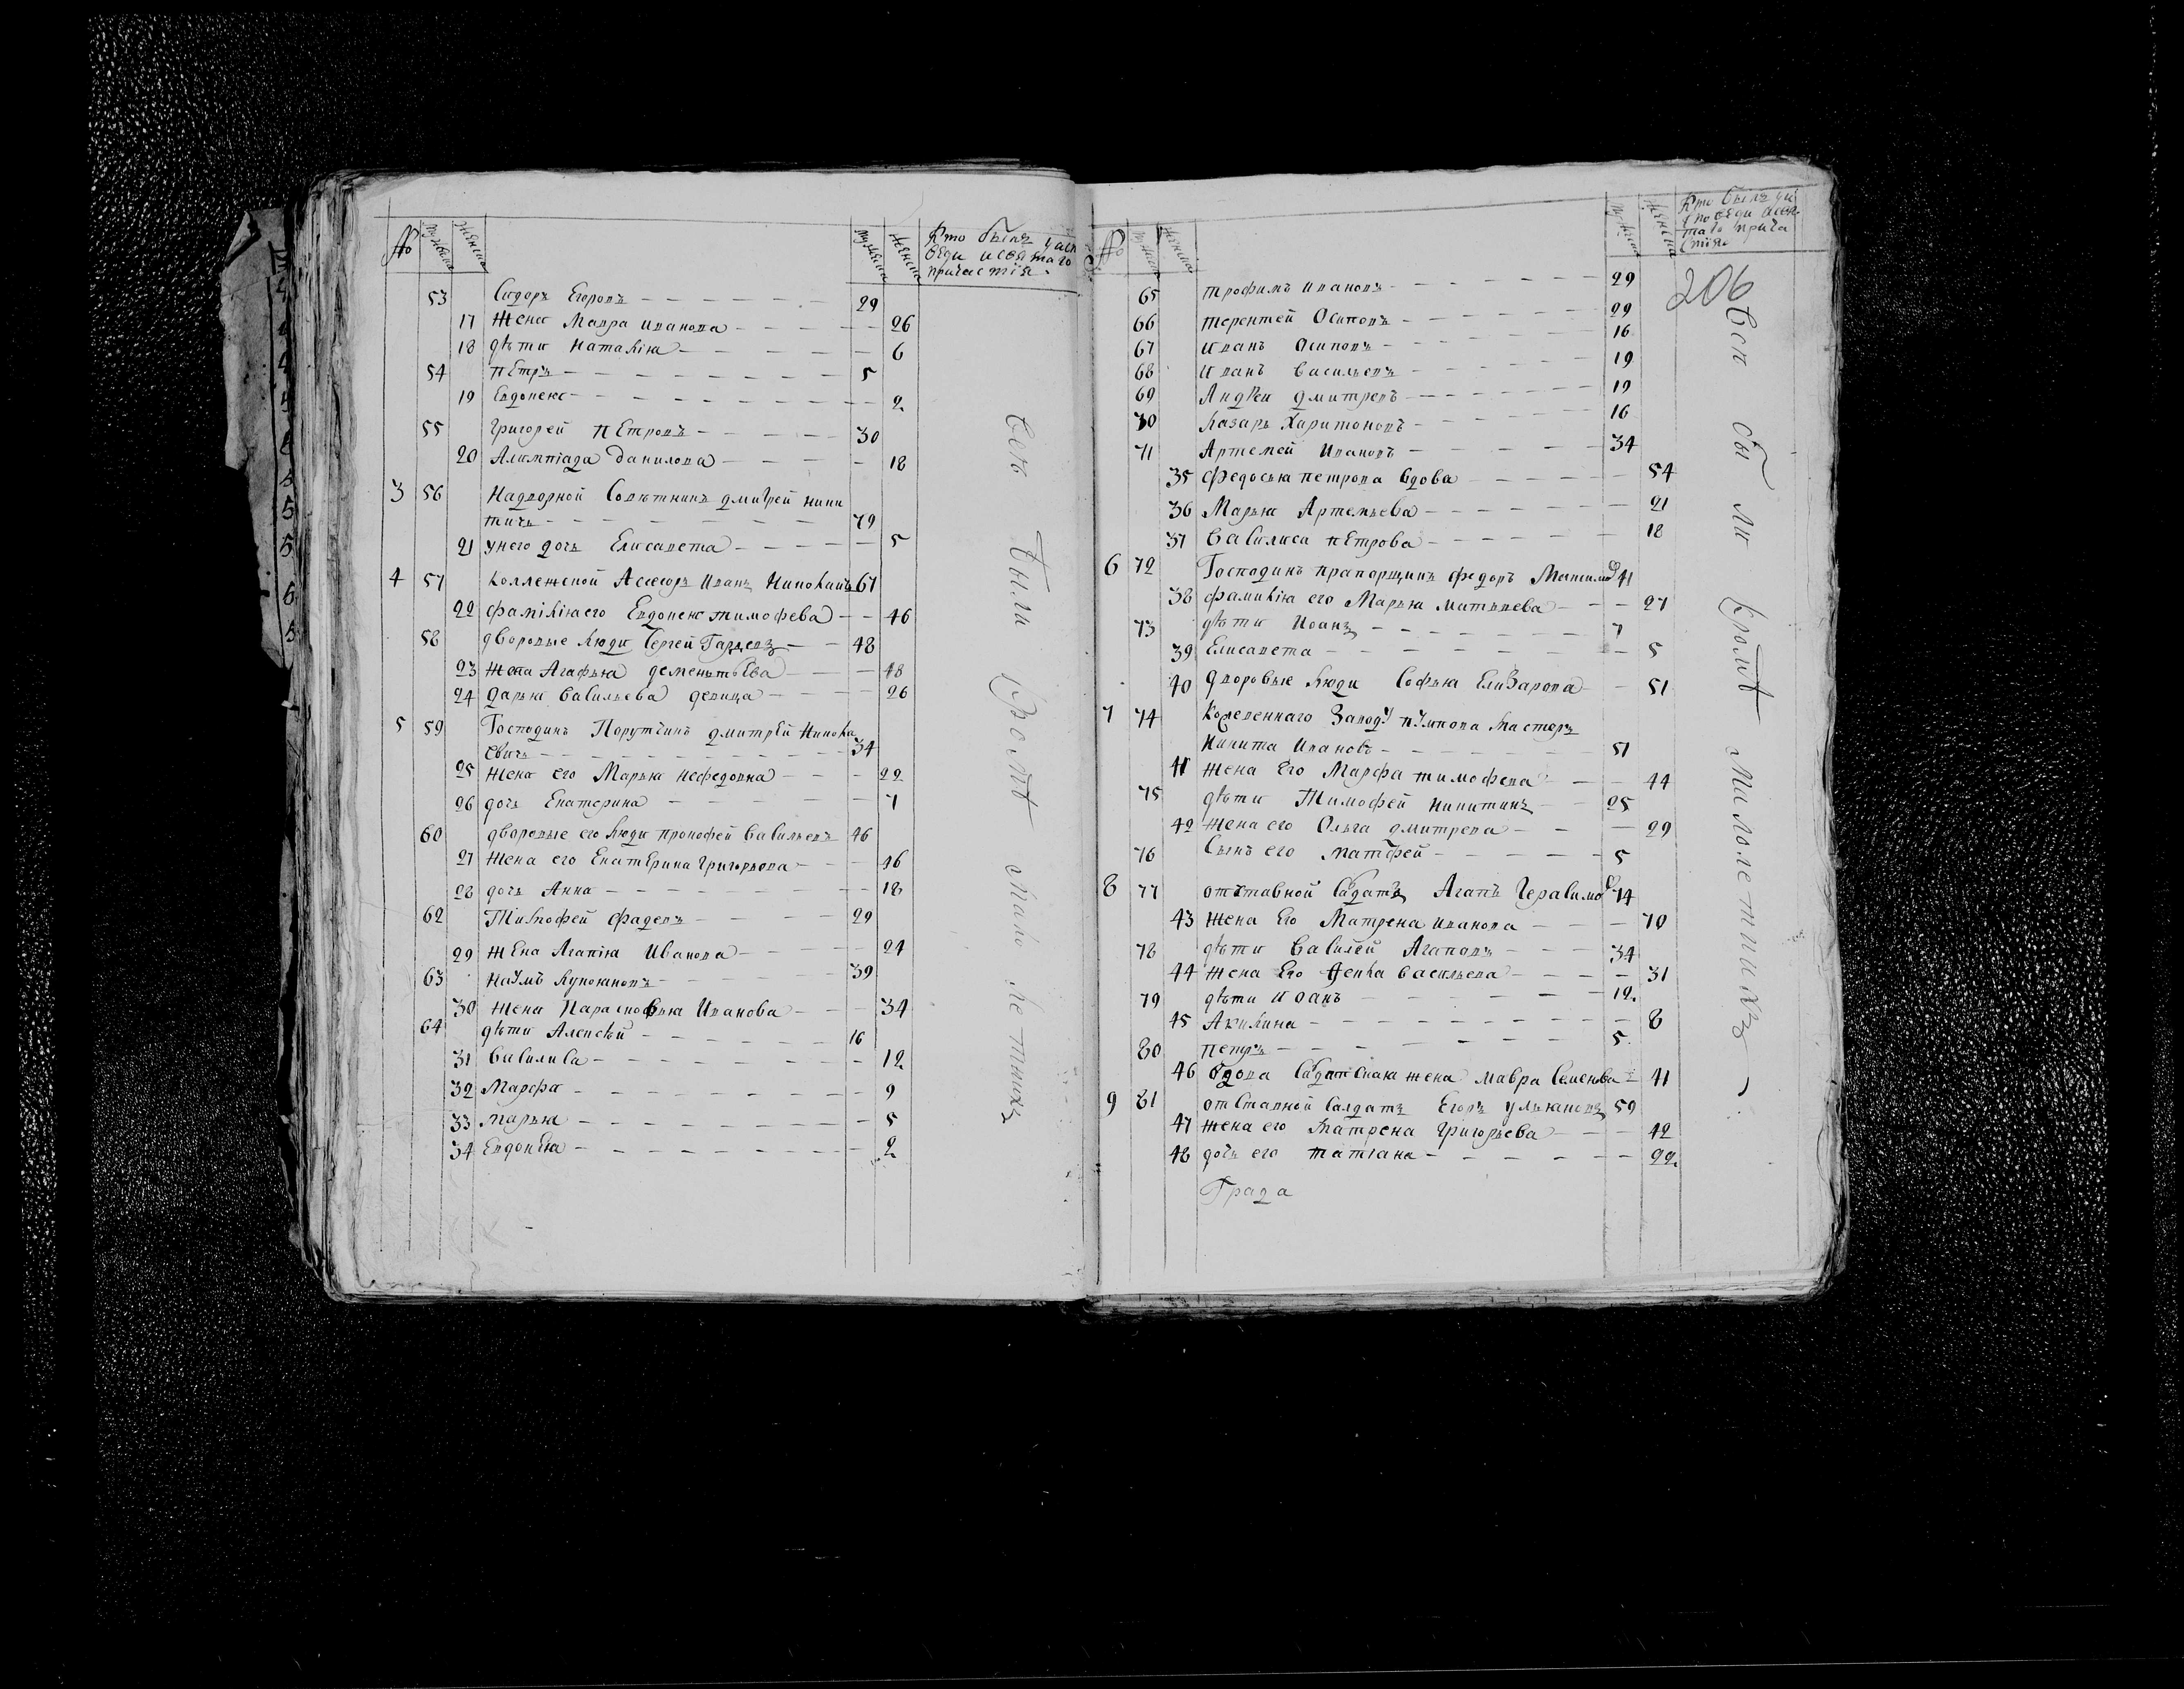 № мужеска женска мужеска женска Кто былъ у исп
веди и святаго
причастiя.
53 Сидоръ Егоровъ 29
17 Жена Мавра иванова 26
18 дѣти наталiя 6
54 пЕтръ 5
19 Евдокея 2
55 Григорей пЕтровъ 30
20 Алимпiада данилова 18
3 56 Надворной Совѣтникъ дмитрей ники
тичь 79
21 у него дочь Елисавета 5
4 57 Коллежской Асесоръ иванъ 67
22 фамилiя его Евдокея тимофева 46
58 дворовые люди Сергей 48
23 жена Агафья дементьЕва 48
24 дарья васильева девица 26
5 59 Господинъ Порутчикъ дмитрЕй
Евичь 34
25 жена его Марья нефедовна 22
26 дочь Екатерина 7
60 дворовые его люди прокофей василь­евъ 46
27 жена его ЕкатЕрина григорьева 46
28 дочь Анна 18
62 Тимофей фадевъ 29
29 жЕна Агапiя Иванова 24
63 наУмъ 39
30 жена Парасковья Иванова 34
64 дѣти Алексѣй 16
31 василиса 12
32 Марфа 9
33 марья 5
34 ЕвдокЕя 2
Всѣ были кромѣ мало летнихъ
№ мужеска женска мужеска женска Кто былъ у и
споведи и свя
таго прича
стiя
206
65 трофимъ ивановъ 29
66 терентей Осиповъ 29
67 иванъ осиповъ 16
68 иванъ васильевъ 19
69 Андрей дмитревъ 19
70 лазарь Харитоновъ 16
71 Артемей Ивановъ 34
35 Федосья петрова вдова 54
36 Марья Артемьева 21
37 василиса пЕтрова 18
6 72 Господинъ прапорщикъ федоръ 41
38 фамилiя его Марья матвѣева 27
73 дѣти Иоанъ 7
39 Елисавета 5
40 дворовые люди Софья Елизарова 51
7 74 заводу мастеръ
Никита Ивановъ 51
41 жена Его Марфа тимофева 44
75 дѣти Тимофей никитинъ 25
42 жена его Ольга дмитрева 29
76 Сынъ его матфей 5
8 77 отставной салдатъ Агапъ Герасимовъ 74
43 жена Его Матрена иванова 70
78 дѣти василей Агаповъ 34
44 жена Его васильева 31
79 дѣти иоанъ 12
45 Акилина 8
80 петръ 5
46 вдова салдатская жена мавра семенова 41
9 81 отставной салдатъ Егоръ ульяновъ 59
47 жена его матрена григорьева 42
48 дочь его татiана 22
Града
Всѣ были кромѣ малолетнихъ